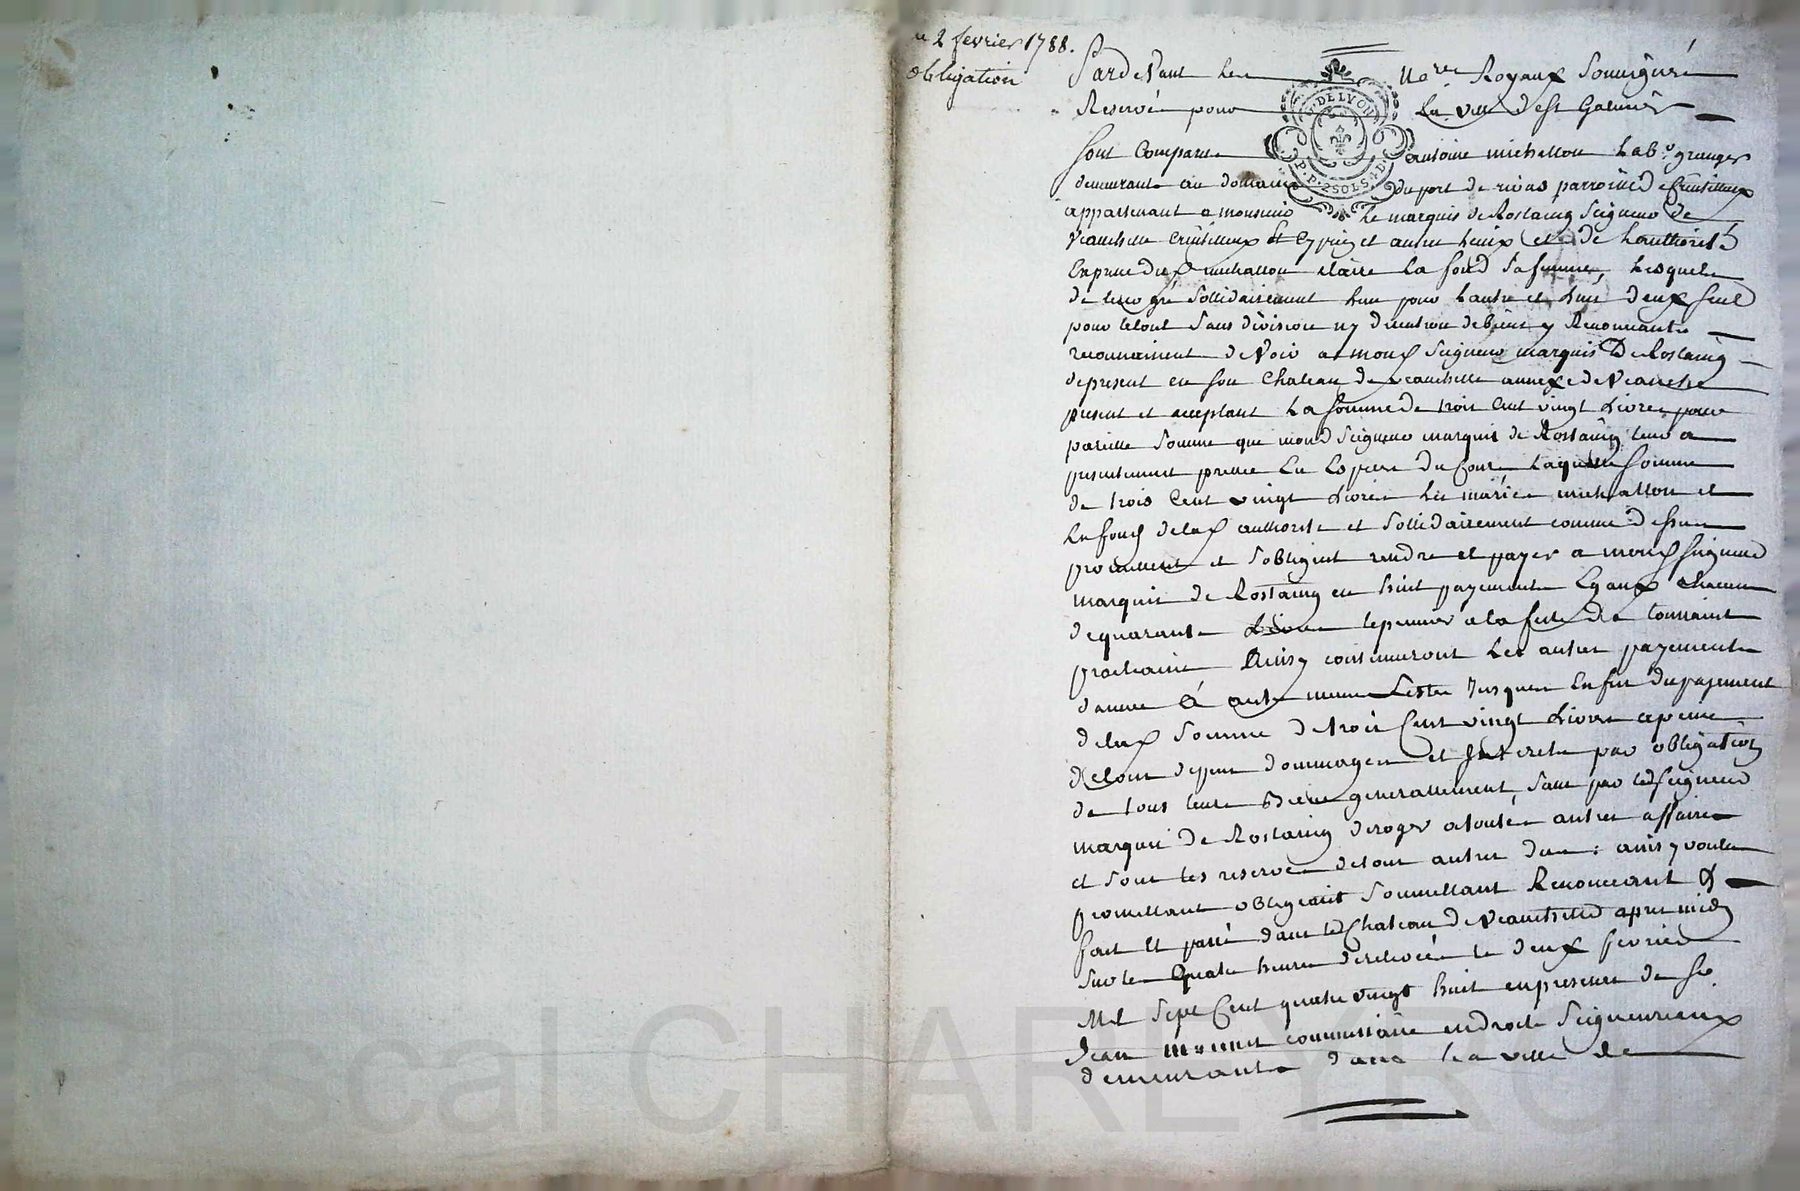 2 fevrier 1788.
obligation
Pardevant les No.res Royaux Soussignés
Reservé pour la ville de St Galmier
G. DE LYON
P.P. 2 SOLS 4 D
sont Comparus antoine michallon Lab.r granger
demeurants au domaine du port de rivas parroisse de Craintilleux
appartenant a monsieur Le marquis de Rostaing Seigneur de
Veauchette Craintilleux St Cyprien et autres Lieux et de Lauthorité
Expresse dud michallon claire La fond Sa femme, Lesquels
de leur gré Sollidairement Lun pour Lautre et Lun deux seul
pour letout Sans division ny discution debiens y Renonceants
reconnoissent deVoir a mond Seigneur marquis De Rostaing
depresent en son Chateau de Veauchette annexe de Veauche
present et acceptant La Somme de trois Cent vingt Livres pour
pareille Somme que mond Seigneur marquis de Rostaing leur a
presentement prettée En Especes du Cours Laquelle Somme
de trois Cent vingt Livres Les mariés michallon et
Lafond delad authorité et Sollidairement comme dessus
promettent et Sobligent rendre et payer a mond Seigneur
marquis de Rostaing en huit payements Egaux chacun
dequarante Livres lepremier a la fete de toussaint
prochaine, Ainsy continueront Les autres payements
dannée à autre meme feste Jusques En fin du payement
delad Somme de trois Cent vingt Livres apeine
detous depens dommages et Interets par obligation
de tous leurs Biens generallement, Sans par led Seigneur
marquis de Rostaing deroger atoutes autres affaires
et Sous les reserves detous autres dus : ainsy voulu
promettant obligeant Soumettant Renonceant &
fait Et passé dans led Chateau de Veauchette apres midy
Sur les Quatre heures derelevée le deux fevrier
Mil Sept Cent quatre vingt huit en presence de Sr.
Jean commissaire en droits Seigneuriaux
demeurant dans La ville de
Pascal CHAREYRON